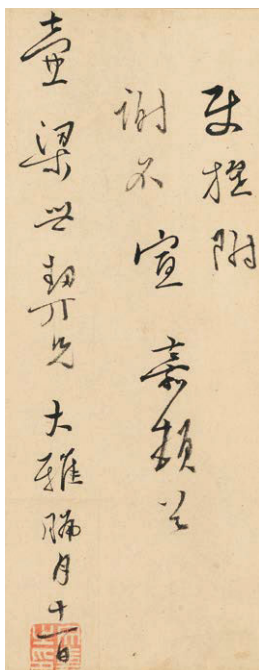 使旋附
謝不宣 嘉頓首
壺梁世契兄大雅 臘月十一日